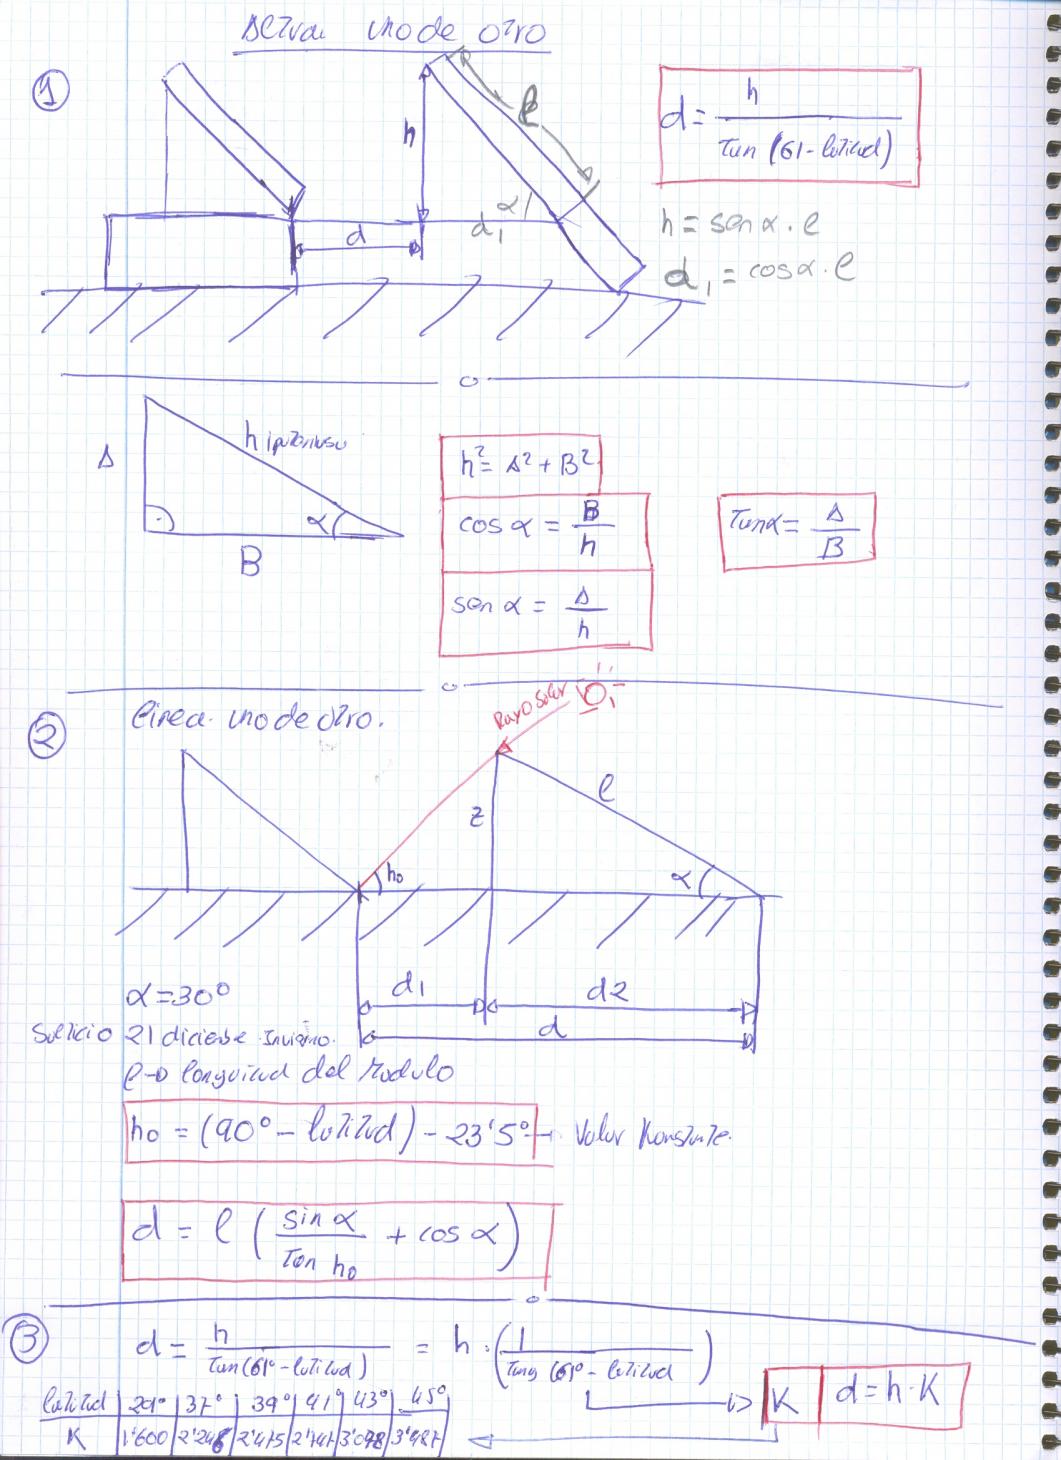 uno de otro
1
d = h / Tan (61 - latitud)
l
h
α
d
d1
h = sen α . l
d1 = cos α . l
hipotenusa
A
α
B
h² = A² + B²
cos α = B / h
Tan α = A / B
sen α = A / h
2
linea uno de otro.
Rayo Solar
l
z
h0
α
d1
d2
d
α = 30°
21 Invierno.
l → longuitud del Modulo
h0 = (90° - latitud) - 23'5° → Valor Konstante.
d = l ( sin α / Tan h0 + cos α )
3
d = h / Tan (61° - latitud) = h . ( 1 / Tang (61° - latitud )
K d = h · K
latitud 29° 37° 39° 41° 43° 45°
K 1'600 2'246 2'475 2'747 3'078 3'487